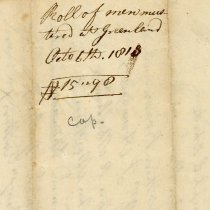 Roll of men mus
tered at Greenland
Octo 6th. 1813
$15..90
cop.